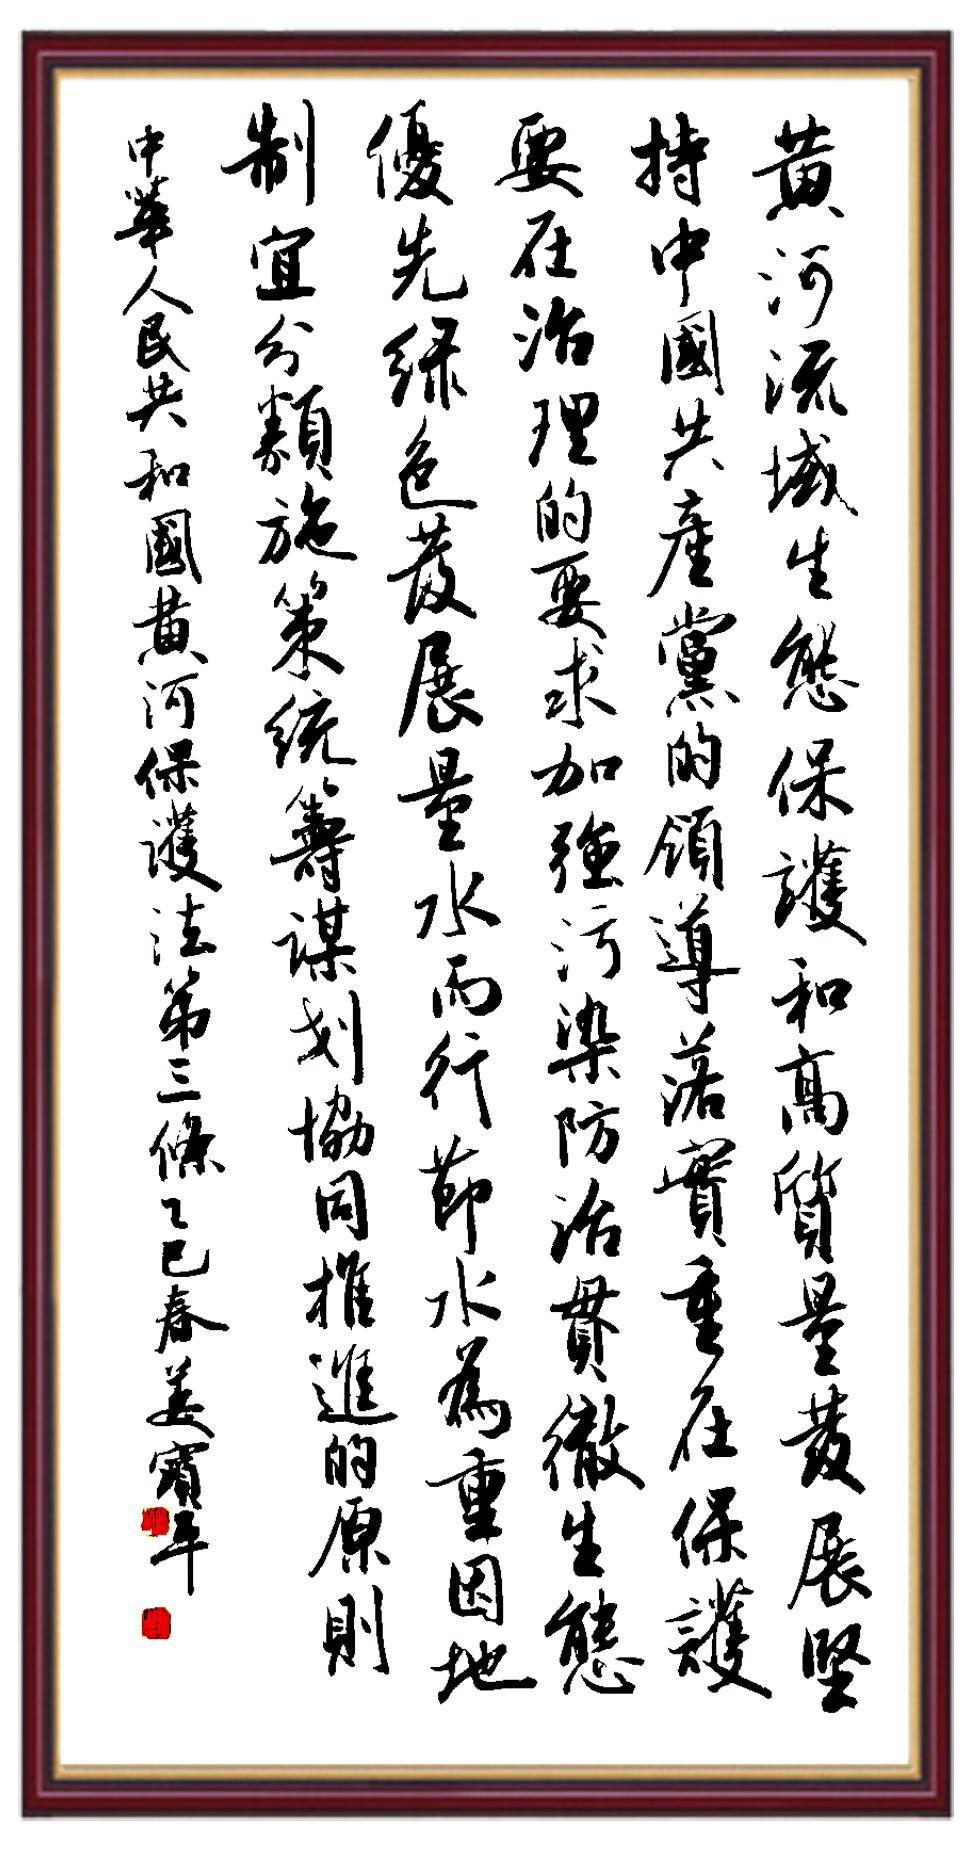 黄河流域生態保護和高質量發展堅
持中國共產黨的領導落實重在保護
要在治理的要求加強污染防治貫徹生態
優先綠色發展量水而行節水為重因地
制宜分類施策統籌謀划協同推進的原則
中華人民共和國黄河保護法第三條乙巳春姜賓年